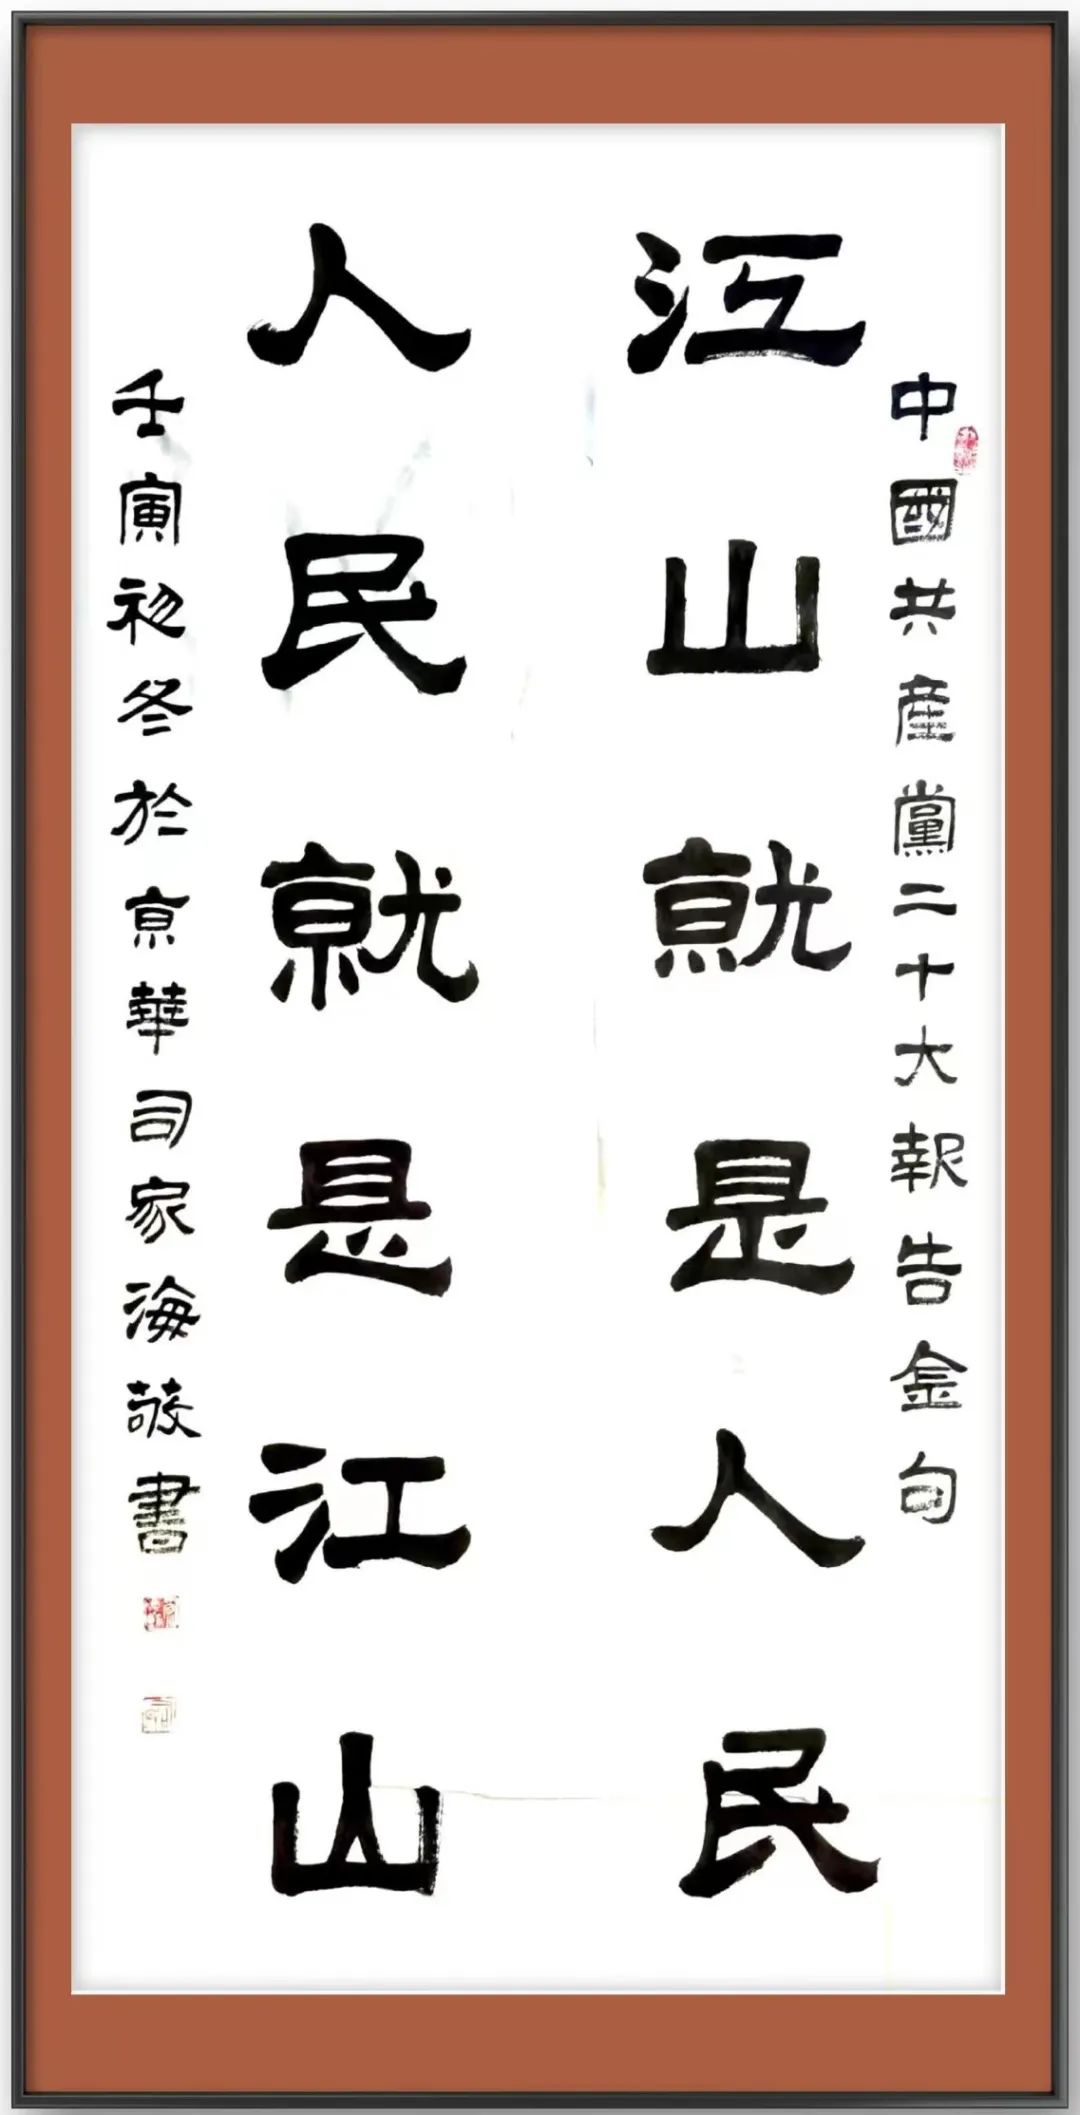 中國共産黨二十大報告金句
江山就是人民
人民就是江山
壬寅初冬於京華司家海敬書